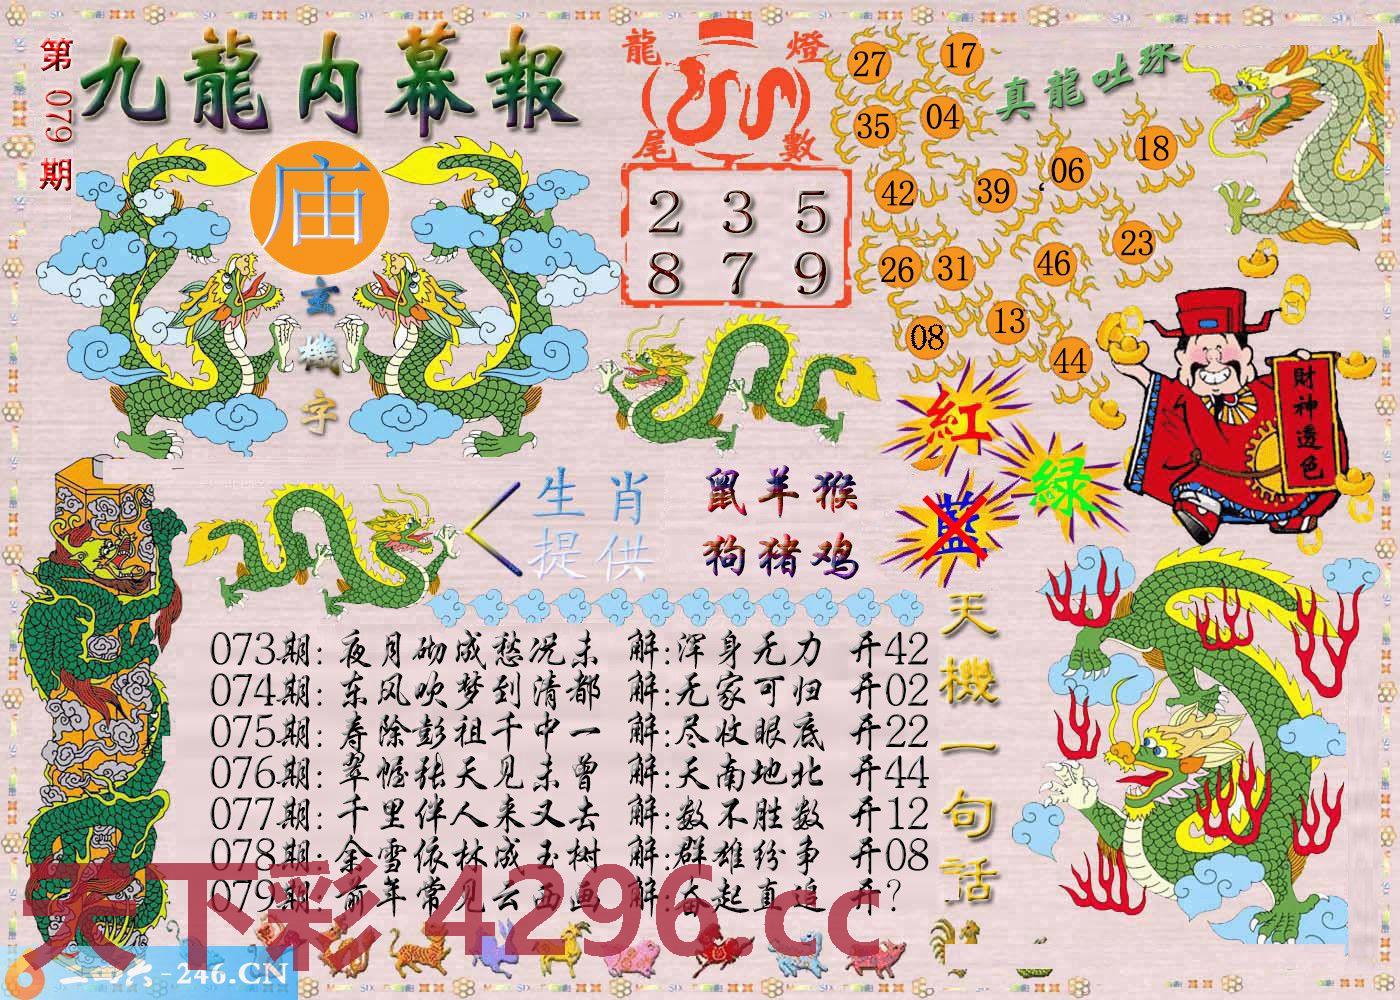 第079期
九龍内幕報
庙
玄機字
龍燈
尾數
2 3 5
8 7 9
真龍吐珠
27 17
35 04
42 39 06 18
26 31 46 23
08 13 44
財神透色
紅
绿
藍
生肖
提供
鼠羊猴
狗猪鸡
天機一句话
073期: 夜月砌成愁况未 解:浑身无力 开42
074期: 东风吹梦到清都 解:无家可归 开02
075期: 寿除彭祖千中一 解:尽收眼底 开22
076期: 翠幄张天见未曾 解:天南地北 开44
077期: 千里伴人来又去 解:数不胜数 开12
078期: 余雪依林成玉树 解:群雄纷争 开08
079期: 前年常见云西画 解:奋起直追 开?
天下彩 4296.cc
二四六-246.CN